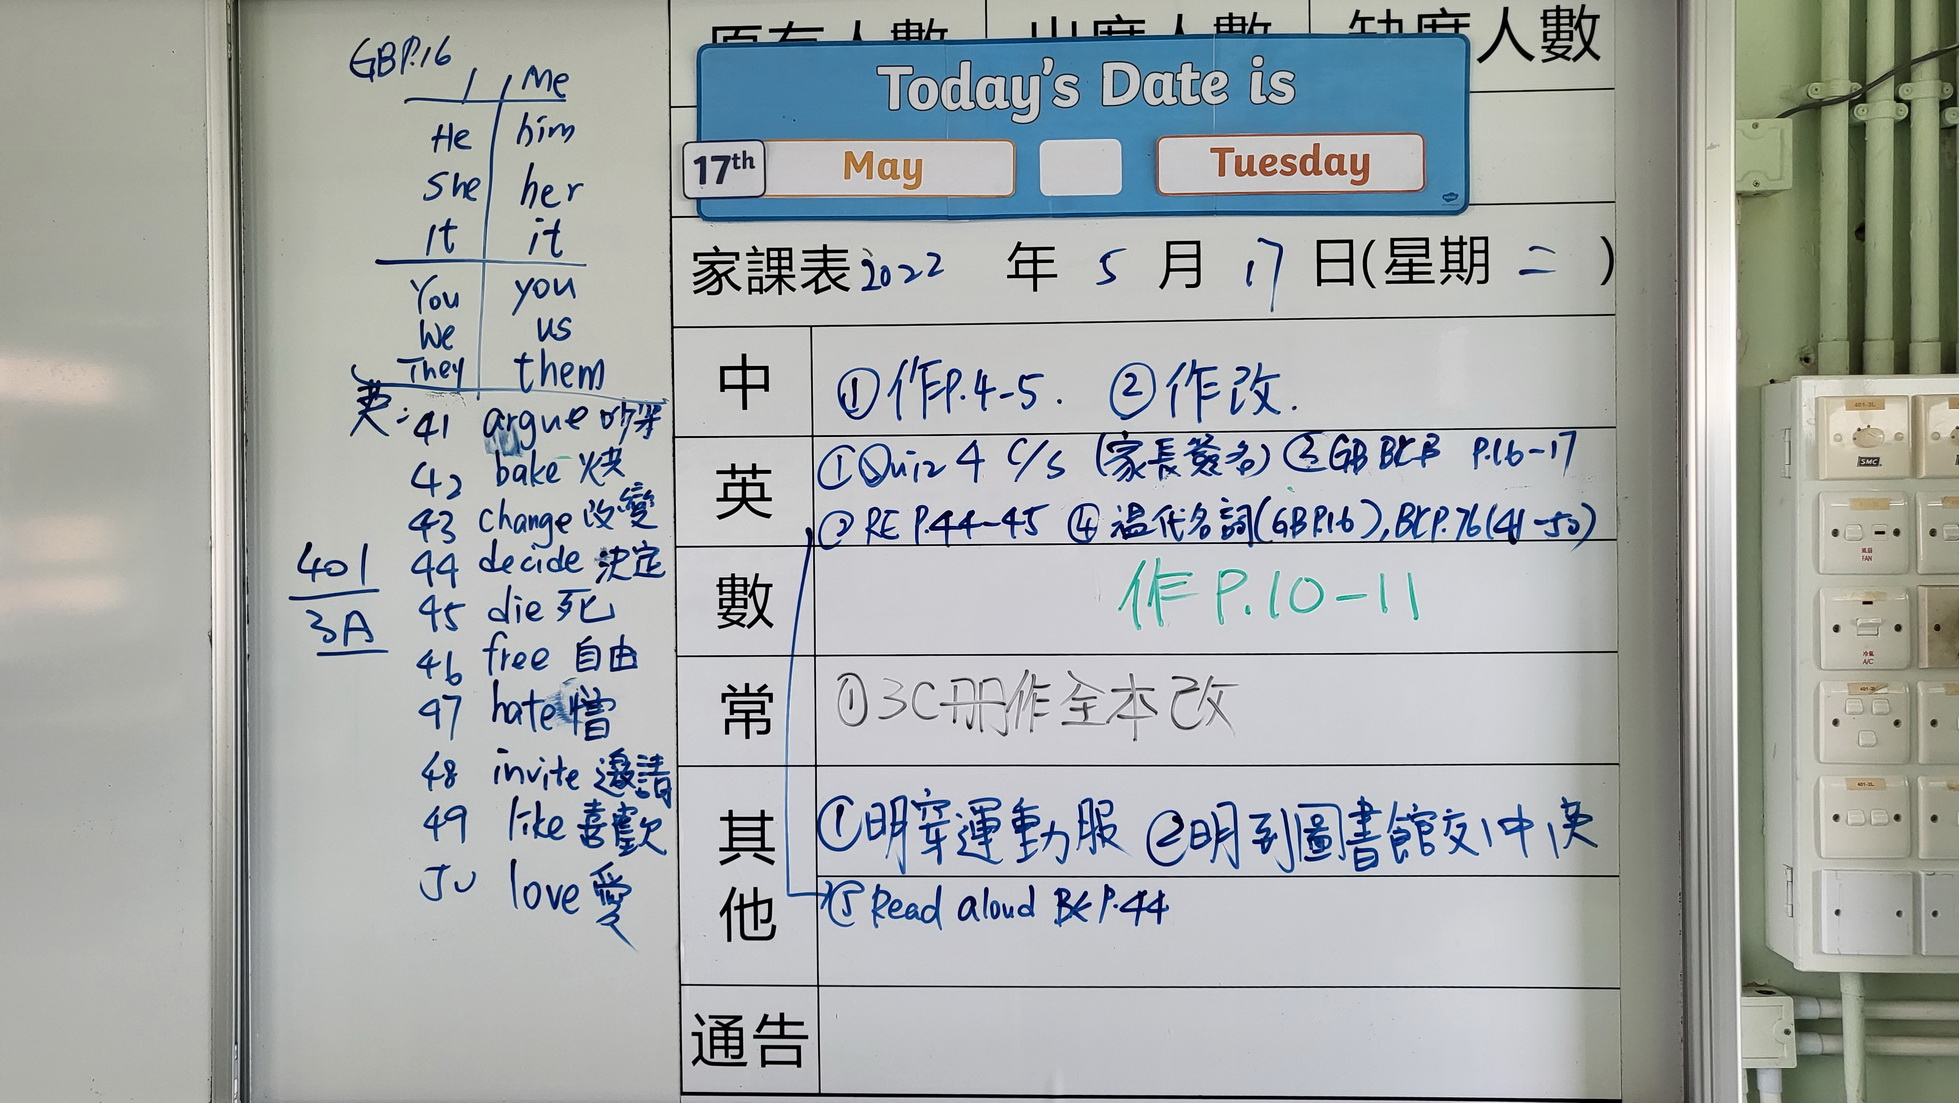 GBP.16
I Me
He him
She her
It it
You you
We us
They them
英: 41 argue 吵架
42 bake 焗
43 change 改變
44 decide 決定
45 die 死
46 free 自由
47 hate 憎
48 invite 邀請
49 like 喜歡
50 love 愛
401
3A
原有人數 出席人數 缺席人數
Today's Date is
17th May Tuesday
家課表 2022 年 5 月 17 日(星期 二 )
中 ①作P.4-5. ②作改.
英 ①Quiz 4 C/S (家長簽名) ③GB BK3 P.16-17
②RE P.44-45 ④溫代名詞(GBP.16), BKP.76(41-50)
數 作 P.10-11
常 ①3C冊作全本改
其他 ①明穿運動服 ②明到圖書館交1中1英
⑤Read aloud BK P.44
通告
SMC
風扇
FAN
冷氣
A/C